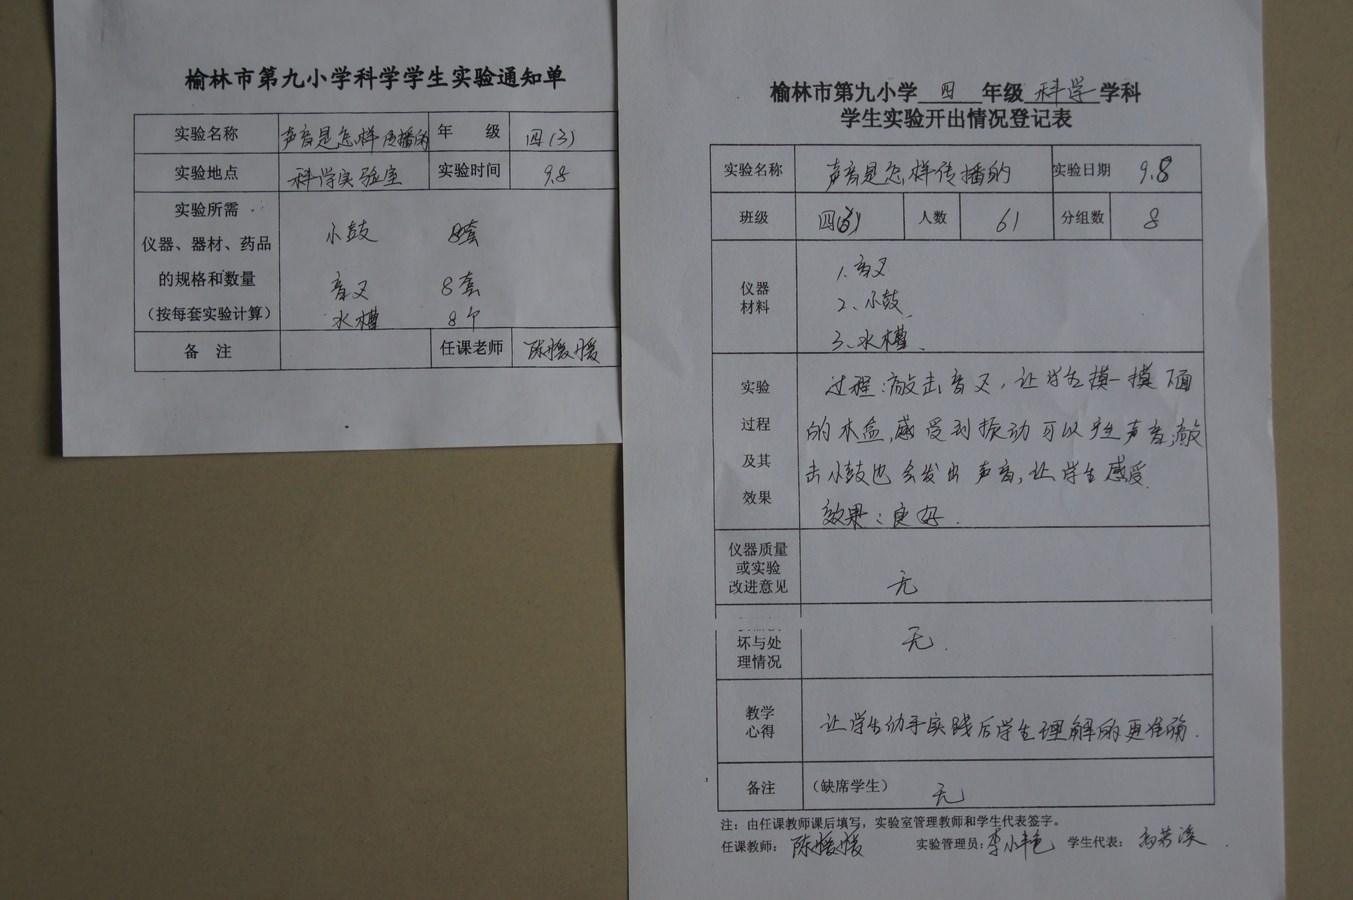 榆林市第九小学科学学生实验通知单
实验名称 声音是怎样传播的 年 级 四(3)
实验地点 科学实验室 实验时间 9.8
实验所需
仪器、器材、药品
的规格和数量
(按每套实验计算)
小鼓 8套
音叉 8套
水槽 8个
备 注 任课老师 陈媛媛
榆林市第九小学 四 年级 科学 学科
学生实验开出情况登记表
实验名称 声音是怎样传播的 实验日期 9.8
班级 四(3) 人数 61 分组数 8
仪器
材料
1、音叉
2、小鼓
3、水槽.
实验
过程
及其
效果
过程:敲击音叉,让学生摸一摸下面
的木盒,感受到振动可以产生声音,敲
击小鼓也会发出声音,让学生感受.
效果:良好.
仪器质量
或实验
改进意见
无
坏与处
理情况
无.
教学
心得
让学生动手实践后学生理解的更准确.
备注 (缺席学生) 无
注:由任课教师课后填写,实验室管理教师和学生代表签字。
任课教师: 陈媛媛 实验管理员: 学生代表: